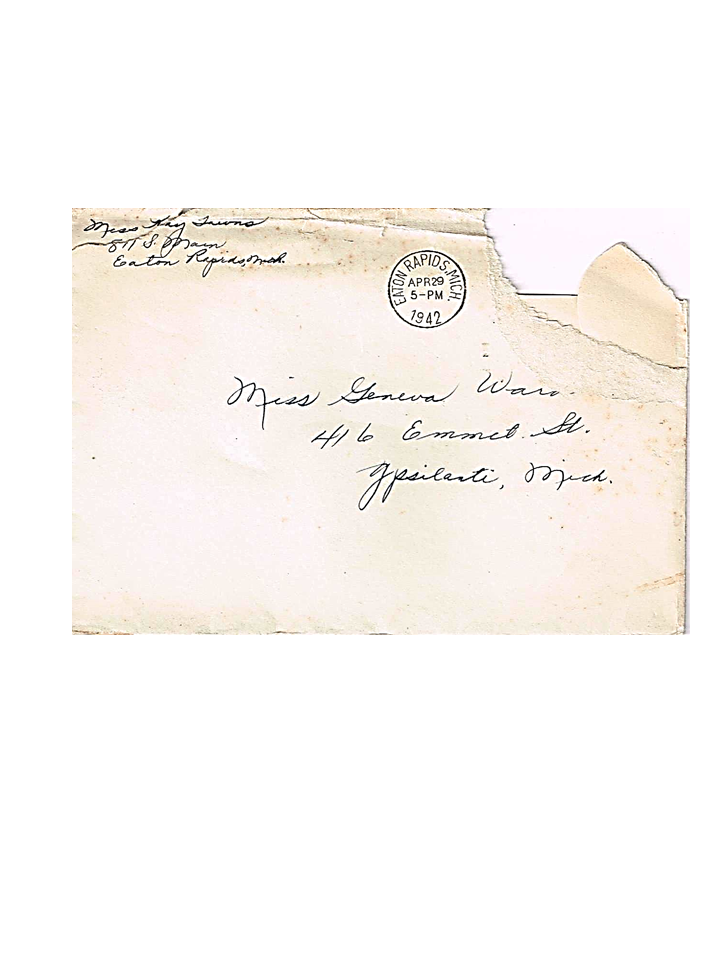 Miss Kay
511 S. Main
Eaton Rapids, Mich.
EATON RAPIDS, MICH.
APR 29
5-PM
1942
Miss Geneva
416 Emmet St.
Ypsilanti, Mich.